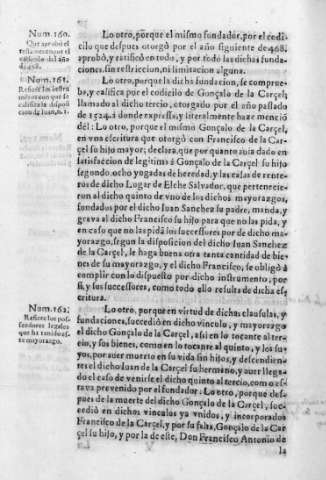 Num. 160.
Que aprobó el
testamento por el
codicilo del año
de 468.
Lo otro, porque el mismo fundador, por el codi-
cilo que despues otorgó por el año siguiente de 468,
aprobó, y ratificó en todo, y por todo las dichas funda-
ciones, sin restriccion, ni limitacion alguna.
Num. 161.
Lo otro, porque la dicha fundacion, se comprue-
ba, y califica por el codicilo de Gonçalo de la Carçel,
llamado al dicho tercio, otorgado por el año passado
de 1524. á donde expressa, y literalmente haze menció
dél: Lo otro, porque el mismo Gonçalo de la Carçel,
en vna escritura que otorgó con Francisco de la Car-
çel su hijo mayor, declara, que por quanto avia dado en
satisfaccion de legitima á Gonçalo de la Carçel su hijo
segundo, ocho yugadas de heredad, y las casas de rente-
ros de dicho Lugar de Elche Salvador, que pertenecie-
ron al dicho quinto de vno de los dichos mayorazgos,
fundados por el dicho Iuan Sanchez su padre, manda, y
grava al dicho Francisco su hijo para que no las pida, y
en caso que no las pidā los successores por de dicho ma-
yorazgo, segun la disposicion del dicho Iuan Sanchez
de la Carçel, se haga buena otra tanta cantidad de bie-
nes de su mayorazgo, y el dicho Francisco, se obligó à
cumplir con lo dispuesto por dicho instrumento, por
si, y sus successores, como todo ello resulta de dicha es-
critura.
Num. 162.
Refiere los pos-
seedores legales
que ha tenido es-
te mayorazgo.
Lo otro, porque en virtud de dichas clausulas, y
fundaciones, succedió en dicho vinculo, y mayorazgo
el dicho Gonçalo de la Carçel, assi en lo tocante al ter-
cio, y sus bienes, como en lo tocante al quinto, y los su-
yos, por aver muerto en su vida sin hijos, y descendien-
tes el dicho Iuan de la Carçel su hermano, y aver llega-
do el caso de venirse el dicho quinto al tercio, como es-
tava prevenido por el fundador: Lo otro, porque des-
pues de la muerte del dicho Gonçalo de la Carçel, suc-
cedió en dichos vinculos ya vnidos, y incorporados
Francisco de la Carçel, y por su falta, Gonçalo de la Car-
çel su hijo, y por la de este, Don Francisco Antonio de
la